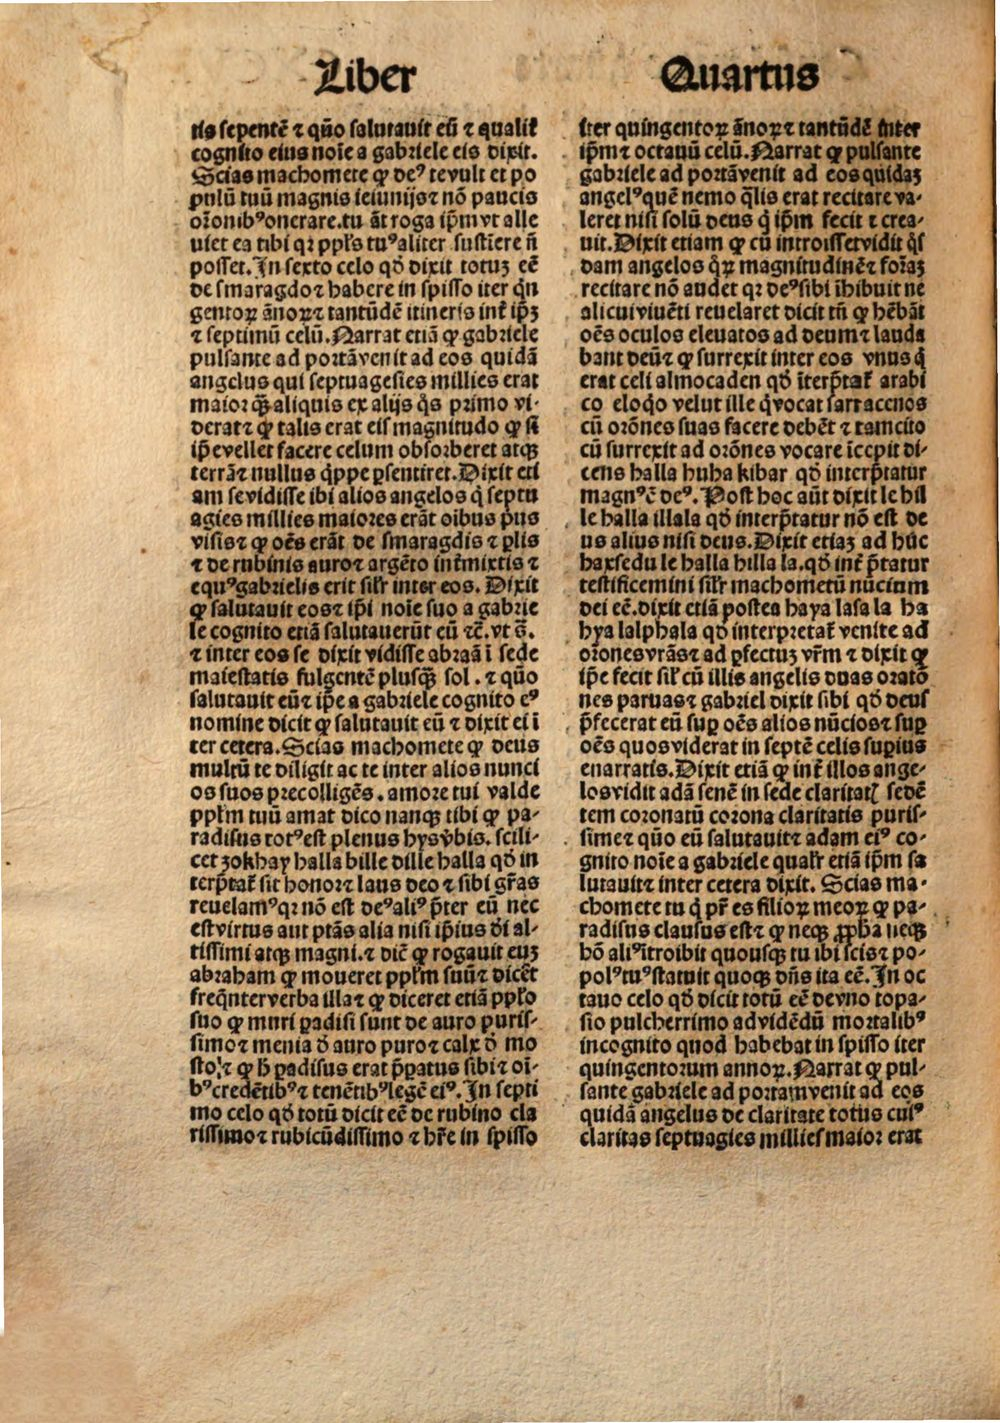 Liber
Quartus
tis sepentē ⁊ quō salutauit eū ⁊ qualiť
cognito eius noīe a gabriele eis dixit.
Scias machomete ꝙ deꝰ te vult et po
pulū tuū magnis ieiunijs⁊ nō paucis
orōnibꝰonerare.tu āt roga ip̄m vt alle
uiet ea tibi qꝛ pplꝰs tuꝰaliter sustiere ñ
posset.In sexto celo qd̓ dixit totuꝫ eē
de smaragdo⁊ habere in spisso iter q̄n
gentoꝝ ānoꝝ⁊ tantūdē itineris inť ip̄ꝫ
⁊ septimū celū.Narrat etiā ꝙ gabriele
pulsante ad portā venit ad eos quidā
angelus qui septuagesies millies erat
maior q̄ꝫ aliquis ex alijs q̄s primo vi-
derat⁊ ꝙ talis erat eiꝰ magnitudo ꝙ si
ip̄e vellet facere celum obsorberet atqꝫ
terrā⁊ nullus q̄ppe ꝑsentiret.Dixit eti
am se vidisse ibi alios angelos q̄ septu
agies millies maiores erāt oībus p̄us
visis⁊ ꝙ oēs erāt de smaragdis ⁊ ꝑlis
⁊ de rubinis auro⁊ argēto inťmixtis ⁊
equꝰgabrielis erit silꝰr inter eos. Dixit
ꝙ salutauit eos⁊ ip̄i noīe suo a gabrie
le cognito etiā salutauerūt eū ⁊c̄. vt s̄.
⁊ inter eos se dixit vidisse abraā i sede
maiestatis fulgentē plusq̄ꝫ sol . ⁊ quō
salutauit eū⁊ ip̄e a gabriele cognito eꝰ
nomine dicit ꝙ salutauit eū ⁊ dixit ei ī
ter cetera.Scias machomete ꝙ deus
multū te diligit ac te inter alios nunci
os suos precolligēs . amore tui valde
pplm̄ tuū amat dico nanqꝫ tibi ꝙ pa-
radisus totꝰest plenus hys v̓bis. scili-
cet zokhay halla bille dille halla qd̓ in
terp̄tať sit honor⁊ laus deo ⁊ sibi gr̄as
reuelamꝰqꝛ nō est deꝰaliꝰ p̄ter eū nec
est virtus aut ptās alia nisi ip̄ius d̓i al-
tissimi atqꝫ magni.⁊ dič ꝙ rogauit euꝫ
abraham ꝙ moueret pplm̄ suū⁊ dicēt
freq̄nter verba illa⁊ ꝙ diceret etiā pplꝰo
suo ꝙ muri ꝑadisi sunt de auro puris-
simo⁊ menia d̓ auro puro⁊ calx d̓ mo
sto.⁊ ꝙ h̄ ꝑadisus erat p̄ꝑatus sibi⁊ oī-
bꝰcredētibꝰ⁊ tenētibꝰlegē eiꝰ.In septi
mo celo qd̓ totū dicit eē de rubino cla
rissimo⁊ rubicūdissimo ⁊ hr̄e in spisso
iter quingentoꝝ ānoꝝ⁊ tantūdē inter
ip̄m⁊ octauū celū.Narrat ꝙ pulsante
gabriele ad portā venit ad eos quidaꝫ
angelꝰquē nemo q̄lis erat recitare va-
leret nisi solū deus q̄ ip̄m fecit ⁊ crea-
uit.Dixit etiam ꝙ cū introisset vidit q̄s
dam angelos q̄ꝝ magnitudinē⁊ forāꝫ
recitare nō audet qꝛ deꝰsibi īhibuit ne
alicui viuēti reuelaret dicit tn̄ ꝙ hēbāt
oēs oculos eleuatos ad deum⁊ lauda
bant deū⁊ ꝙ surrexit inter eos vnus q̄
erat celi almocaden qd̓ īterp̄tať arabi
co eloq̄o velut ille q̄ vocat sarracenos
cū orōnes suas facere debēt ⁊ tamcito
cū surrexit ad orōnes vocare īcepit di-
cens halla huha kibar qd̓ interp̄tatur
magnꝰē deꝰ. Post hoc aūt dixit le hil
le halla illala qd̓ interp̄tatur nō est de
us alius nisi deus.Dixit etiaꝫ ad hūc
haxsedu le halla hilla la.qd̓ inť p̄tatur
testificemini silꝰr machometū nūcium
dei eē.dixit etiā postea haya lasa la ha
hya lalphala qd̓ interpretať venite ad
orōnes vr̄as⁊ ad ꝑfectuꝫ vr̄m ⁊ dixit ꝙ
ip̄e fecit silꝰ cū illis angelis duas oratō
nes paruas⁊ gabriel dixit sibi qd̓ deus
p̄fecerat eū suꝑ oēs alios nūcios⁊ suꝑ
oēs quos viderat in septē celis suꝑius
enarratis.Dixit etiā ꝙ inť illos ange-
los vidit adā senē in sede claritatꝭ sedē
tem coronatū corona claritatis puris-
sime⁊ quō eū salutauit⁊ adam eiꝰ co-
gnito noīe a gabriele qualꝰr etiā ip̄m sa
lutauit⁊ inter cetera dixit. Scias ma-
chomete tu q̄ pr̄ es filioꝝ meoꝝ ꝙ pa-
radisus clausus est⁊ ꝙ neqꝫ ꝓpha neqꝫ
hō aliꝰītroibit quousqꝫ tu ibi scis⁊ po-
polꝰtuꝰstatuit quoqꝫ dn̄s ita eē.In oc
tauo celo qd̓ dicit totū eē de vno topa-
sio pulcherrimo ad vidēdū mortalibꝰ
incognito quod habebat in spisso iter
quingentorum annoꝝ.Narrat ꝙ pul-
sante gabriele ad portam venit ad eos
quidā angelus de claritate totus cuiꝰ
claritas septuagies millies maior erat